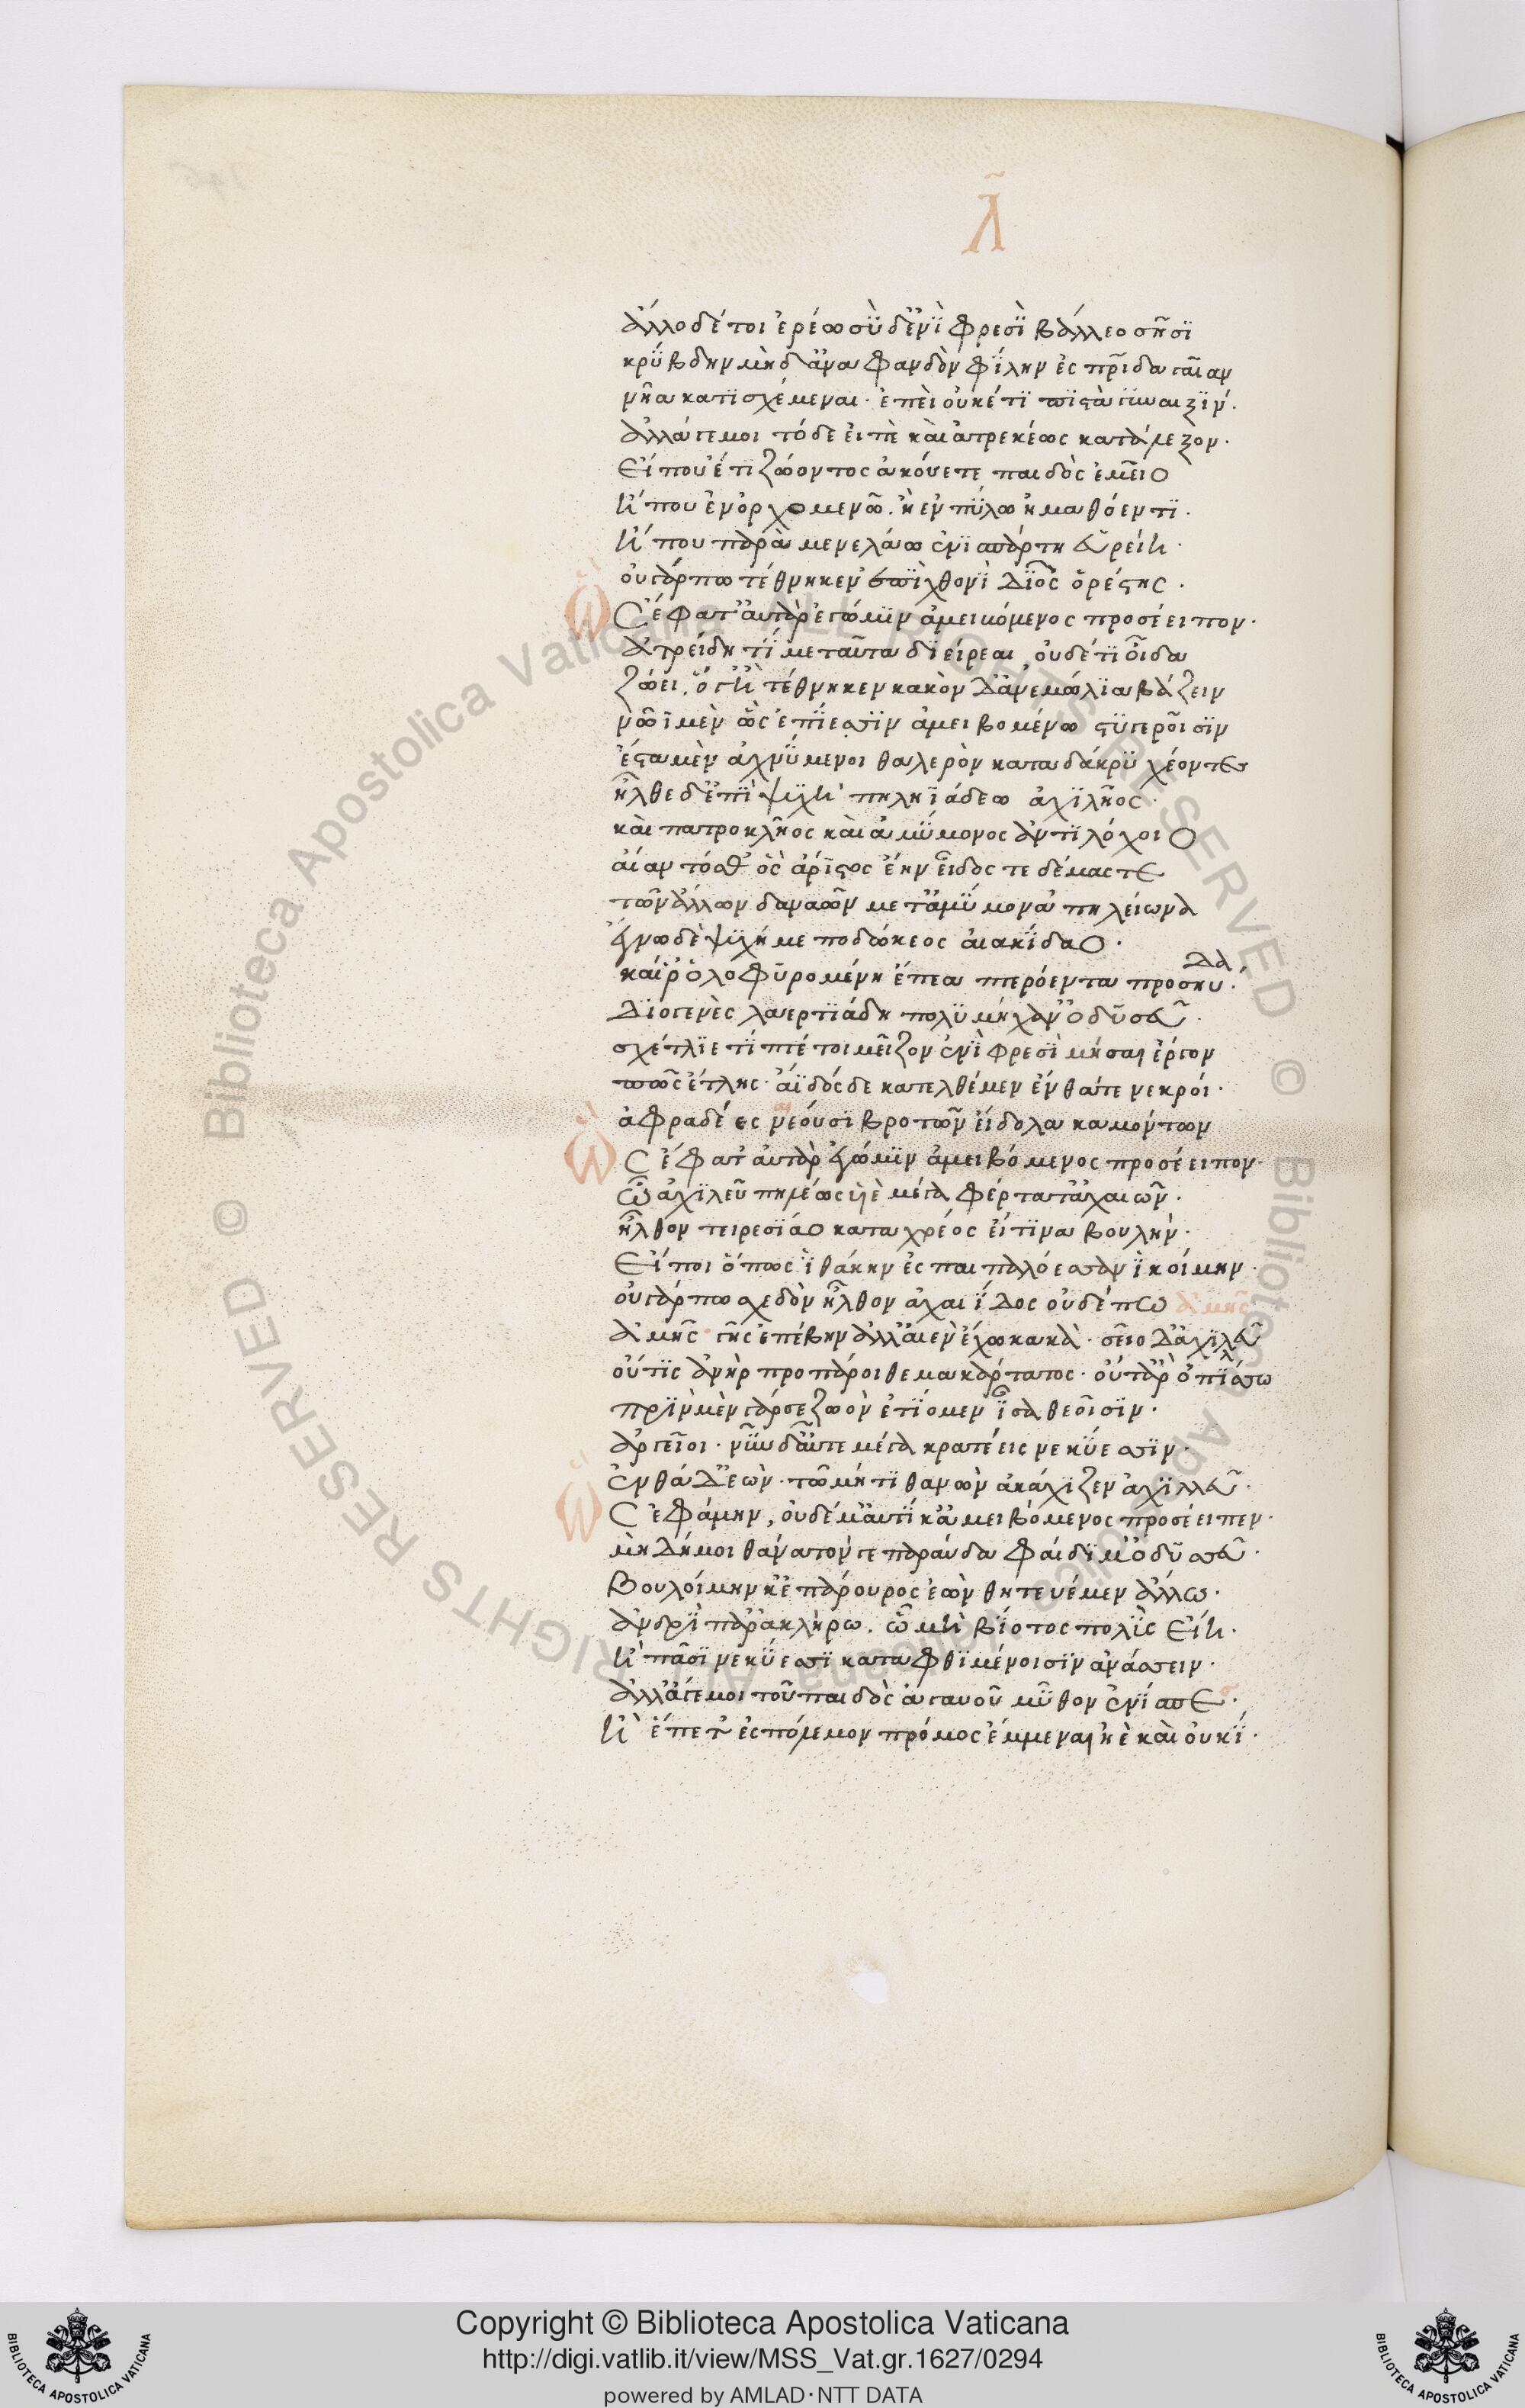 λ̃
ἄλλο δέ τοι ἐρέω σὺ δ' ἐνὶ φρεσὶ βάλλεο σῇσι
κρύβδην μὴδ' ἄνα φανδὸν φίλην ἐς πρῖδα γαῖαν
νῆα κατισχέμεναι· ἐπεὶ οὐκέτι πιστὰ γυναιξίν.
ἀλλ' ἄγε μοι τόδε εἰπὲ καὶ ἀτρεκέως κατάλεξον·
Εἴ που ἔτι ζώοντος ἀκούετε παιδὸς ἐμεῖο
ἤ που ἐν ὀρχομενῶ. ἢ ἐν πύλω ἠμαθόεντι·
ἤ που παρὰ μενελάω ἐνὶ σπάρτη εὐρείη·
οὐ γάρ πω τέθνηκεν ἐπὶ χθονὶ Δῖος ὀρέστης·
Ὣς ἔφατ' αὐτὰρ ἐγώ μιν ἀμειβόμενος προσέειπον·
ἀτρείδη τί με ταῦτα διείρεαι, οὐδέ τι οἶδα
ζώει, ὅγ' ἢ τέθνηκεν κακὸν δ' ἀνεμώλια βάζειν
νῶϊ μὲν ὣς ἐπέεσσιν ἀμειβομένω στυγεροῖσιν
ἔσταμὲν ἀχνύμενοι θαλερὸν κατα δάκρυ χέοντες
ἦλθε δ' ἐπὶ ψυχὴ πηληϊάδεω ἀχιλῆος·
καὶ πατροκλῆος καὶ ἀμύμονος ἀντιλόχοιο
αἴαντός θ' ὃς ἄριστος ἔην εἶδος τε δέμας τε
τῶν ἄλλων δαναῶν μετ' ἀμύμονα πηλείωνα
ἔγνω δὲ ψυχή με ποδώκεος αἰακίδαο·
καί ῥ' ὀλοφυρομένη ἔπεα πτερόεντα προσηυδα·
Διογενὲς λαερτιάδη πολυμήχαν' ὀδυσεῦ·
σχέτλιε τίπτέ τοι μεῖζον ἐνὶ φρεσὶ μήσαι ἔργον
πῶς ἔτλης· ἄϊδος δε κατελθέμεν ἔνθα τε νεκροί·
ἀφραδέες νεούσι βροτῶν εἴδολα καμόντων
Ὣς ἔφατ' αὐτὰρ ἐγώ μιν ἀμειβόμενος προσέειπον·
ὦ ἀχιλεῦ πηλέως υἱὲ μέγα φέρτατ' ἀχαιῶν·
ἦλθον τειρεσίαο κατα χρέος εἴ τινα βουλὴν·
Εἴποι ὅπως ἰθάκην ἐς παιπαλόεσσαν ἱκοίμην·
οὐ γάρ πω σχεδὸν ἦλθον ἀχαιΐδος οὐδέ πω ἀμῆς
ἀμῆς γῆς ἐπέβην ἀλλ' αἰὲν ἔχω κακὰ· σεῖο δ' ἀχιλεῦ
οὔτις ἀνὴρ προπάροιθε μακάρτατος· οὔτ' ἂρ ὀπίσσω
πρὶν μὲν γάρ σε ζωὸν ἐτίομεν ἶσα θεοῖσιν·
ἀργεῖοι· νῦν δ' αὖτε μέγα κρατέεις νεκύεσσιν·
ἐνθάδ' ἐὼν· τῶ μή τι θανὼν ἀκάχιζεν ἀχιλλεῦ·
Ὣς ἐφάμην, ὁ δέ μ' αὐτίκ' ἀμειβόμενος προσέειπεν·
μὴ δή μοι θάνατόν γε παραύδα φαίδιμ' ὀδυσσεῦ·
Βουλοίμην κ' ἐπάρουρος ἐὼν θητευέμεν ἄλλω·
ἀνδρὶ παρ' ἀκλήρω. ὧ μὴ βίοτος πολὺς εἴη·
ἢ πᾶσι νεκύεσσι καταφθιμένοισιν ἀνάσσειν·
ἀλλ' ἄγε μοι τοῦ παιδὸς ἀγαυοῦ μῦθον ἐνίσπε·
ἢ ἕπετ' ἐς πόλεμον πρόμος ἔμμεναι ἠὲ καὶ οὐκί·
Copyright © Biblioteca Apostolica Vaticana
http://digi.vatlib.it/view/MSS_Vat.gr.1627/0294
powered by AMLAD·NTT DATA